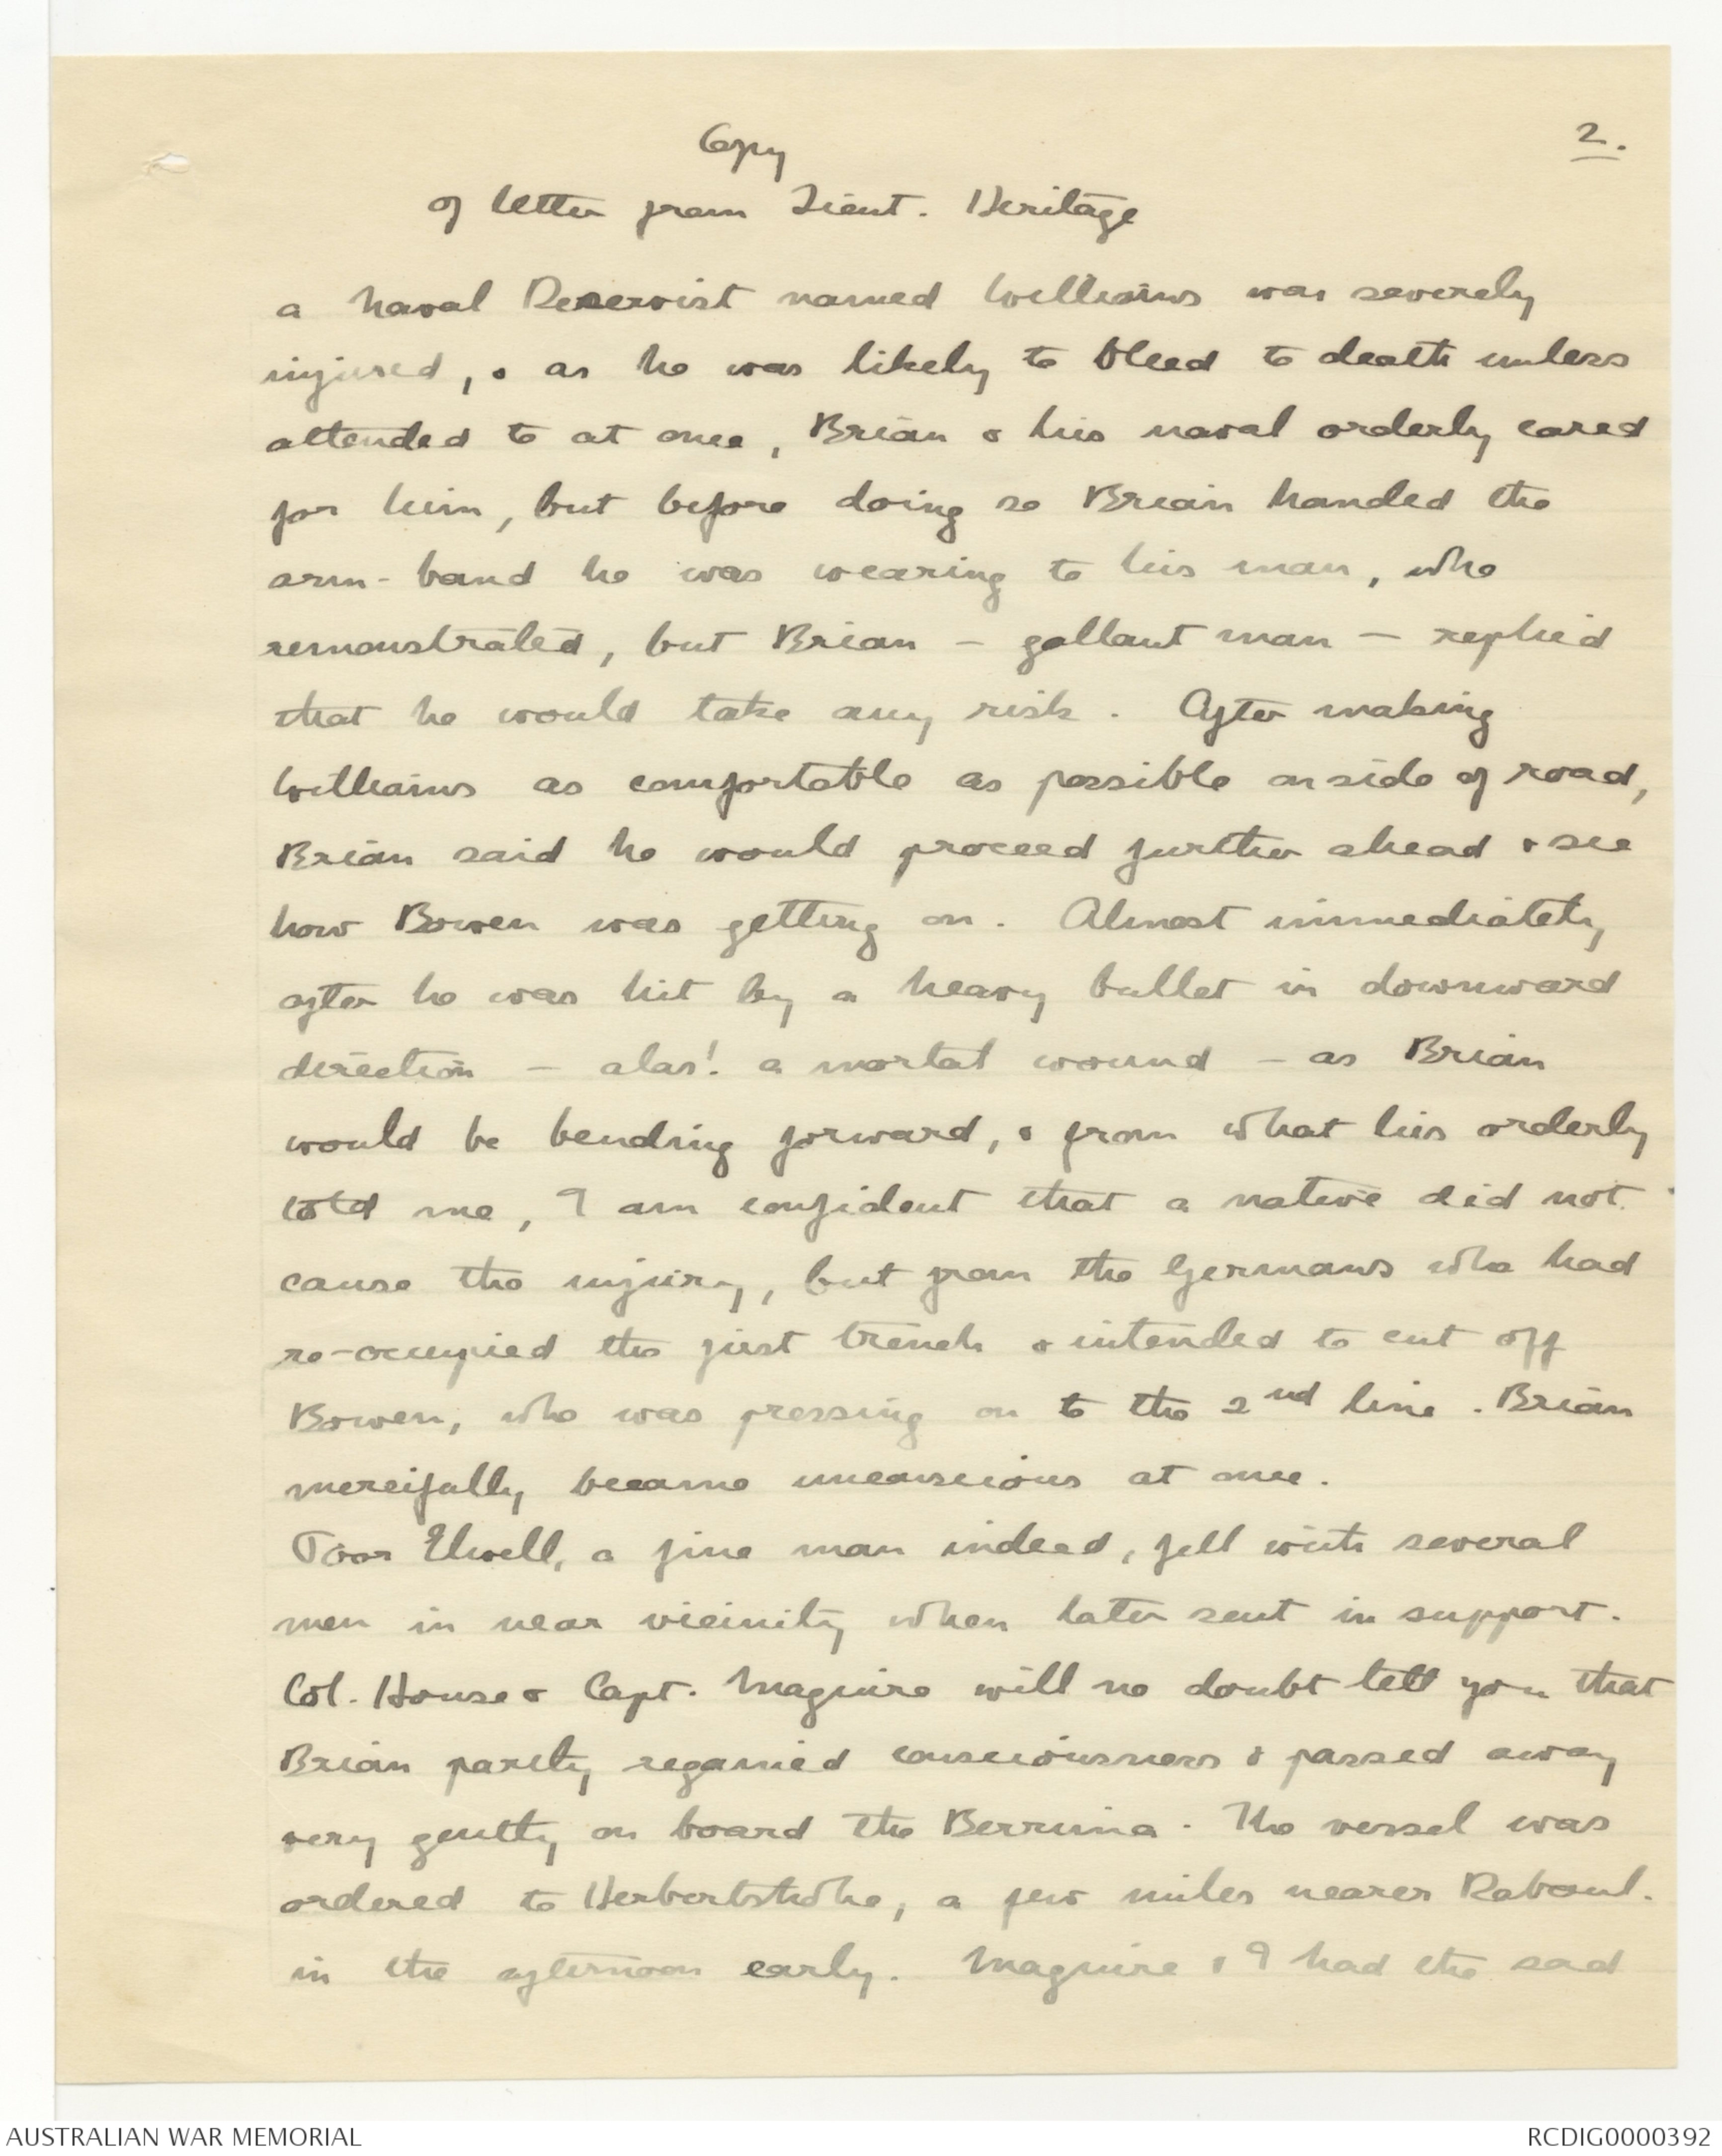 Copy
2.
of letter from Lieut. Heritage
a Naval Reservist named Williams was severely
injured, & as he was likely to bleed to death unless
attended to at once, Brian & his naval orderly cared
for him, but before doing so Brian handed the
arm-band he was wearing to his man, who
remonstrated, but Brian - gallant man - replied
that he would take any risk. After making
Williams as comfortable as possible on side of road,
Brian said he would proceed further ahead & see
how Bowen was getting on. Almost immediately
after he was hit by a heavy bullet in downward
direction - alas! a mortal wound - as Brian
would be bending forward, & from what his orderly
told me, I am confident that a native did not
cause the injury, but from the Germans who had
re-occupied the first trench & intended to cut off
Bowen, who was pressing on to the 2nd line. Brian
mercifully became unconscious at once.
Poor Elwell, a fine man indeed, fell with several
men in near vicinity when later sent in support.
Col. House & Capt. Maguire will no doubt tell you that
Brian partly regained consciousness & passed away
very gently on board the Berrima. The vessel was
ordered to Herbertshöhe, a few miles nearer Rabaul.
in the afternoon early. Maguire & I had the sad
AUSTRALIAN WAR MEMORIAL
RCDIG0000392